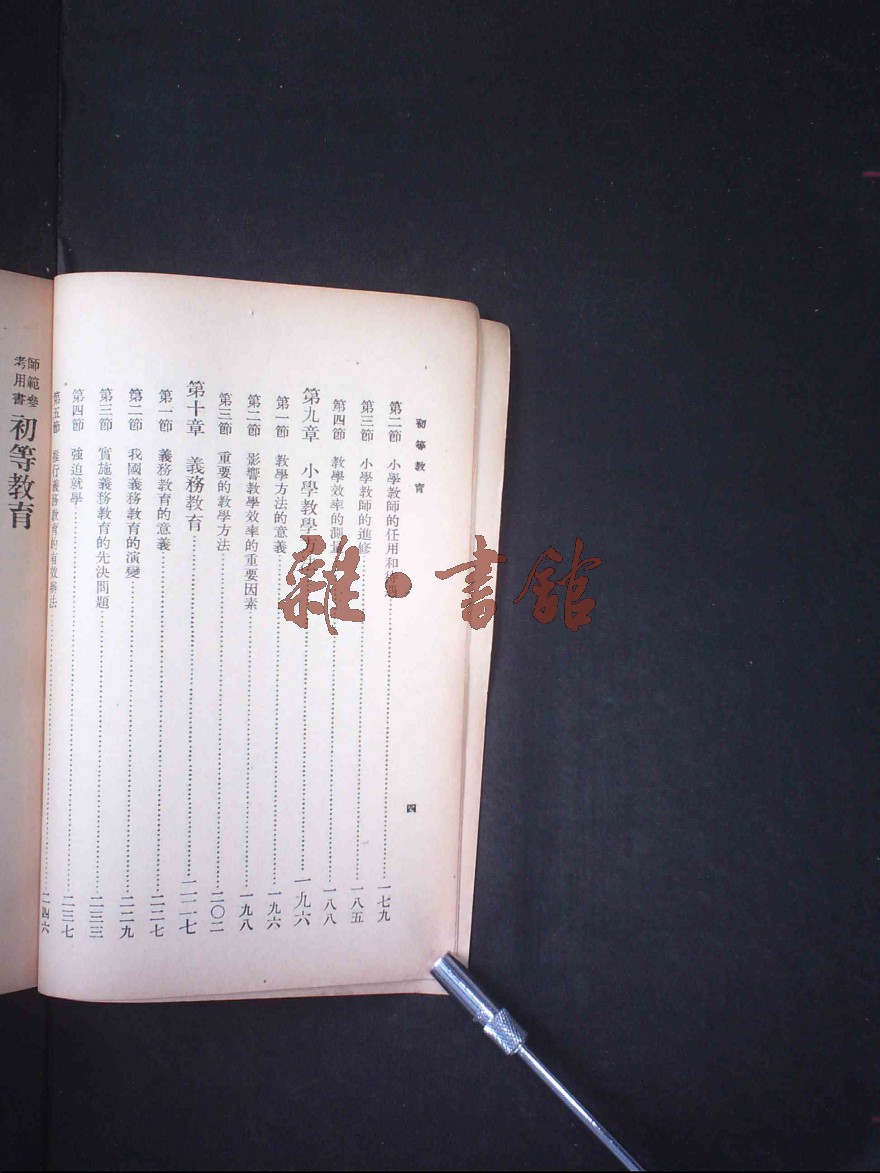 初等教育
四
第二節 小學教師的任用和待遇 一七九
第三節 小學教師的進修 一八五
第四節 教學效率的測量 一八八
第九章 小學教學方 一九六
第一節 教學方法的意義 一九六
第二節 影響教學效率的重要因素 一九八
第三節 重要的教學方法 二〇二
第十章 義務教育 二二七
第一節 義務教育的意義 二二七
第二節 我國義務教育的演變 二二九
第三節 實施義務教育的先決問題 二三三
第四節 強迫就學 二三七
第五節 推行義務教育的有效辦法 二四六
師範參考用書 初等教育
雜·書館